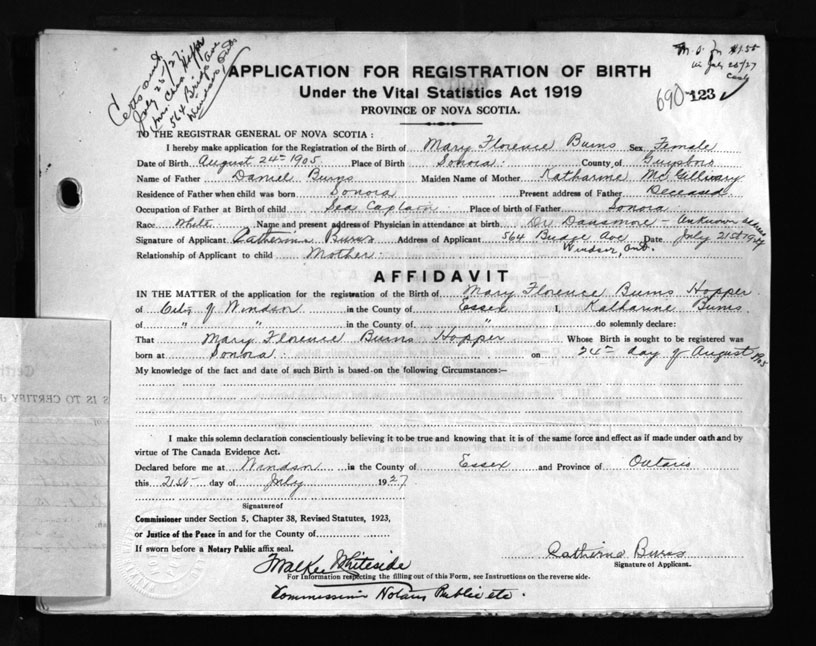 Certs sent
July 25/27
Mrs. Chas Hopper
564 Bridge Ave
Windsor Ont
M. O. for $1.50
in July 25/27
APPLICATION FOR REGISTRATION OF BIRTH
Under the Vital Statistics Act 1919
PROVINCE OF NOVA SCOTIA.
690 123
TO THE REGISTRAR GENERAL OF NOVA SCOTIA :
I hereby make application for the Registration of the Birth of Mary Florence Burns Sex Female
Date of Birth August 24th 1905 Place of Birth Sonora County of Guysboro
Name of Father Daniel Burns Maiden Name of Mother Katharine McGillivary
Residence of Father when child was born Sonora Present address of Father Deceased
Occupation of Father at Birth of child Sea Captain Place of birth of Father Sonora
Race White Name and present address of Physician in attendance at birth Dr Densmore - Unknown address
Signature of Applicant Catherine Burns Address of Applicant 564 Bridge Ave Date July 21st 1927
Windsor, Ont.
Relationship of Applicant to child Mother
AFFIDAVIT
IN THE MATTER of the application for the registration of the Birth of Mary Florence Burns Hopper
of City of Windsor in the County of Essex I, Katharine Burns
of " " in the County of " do solemnly declare:
That Mary Florence Burns Hopper Whose Birth is sought to be registered was
born at Sonora on 24th day of August 1905
My knowledge of the fact and date of such Birth is based on the following Circumstances:—
I make this solemn declaration conscientiously believing it to be true and knowing that it is of the same force and effect as if made under oath and by
virtue of The Canada Evidence Act.
Declared before me at Windsor in the County of Essex and Province of Ontario
this 21st day of July 1927
Signature of
Commissioner under Section 5, Chapter 38, Revised Statutes, 1923,
or Justice of the Peace in and for the County of
If sworn before a Notary Public affix seal.
Catherine Burns
Signature of Applicant.
Walker Whiteside
For Information respecting the filling out of this Form, see Instructions on the reverse side.
Commissioner Notary Public etc.